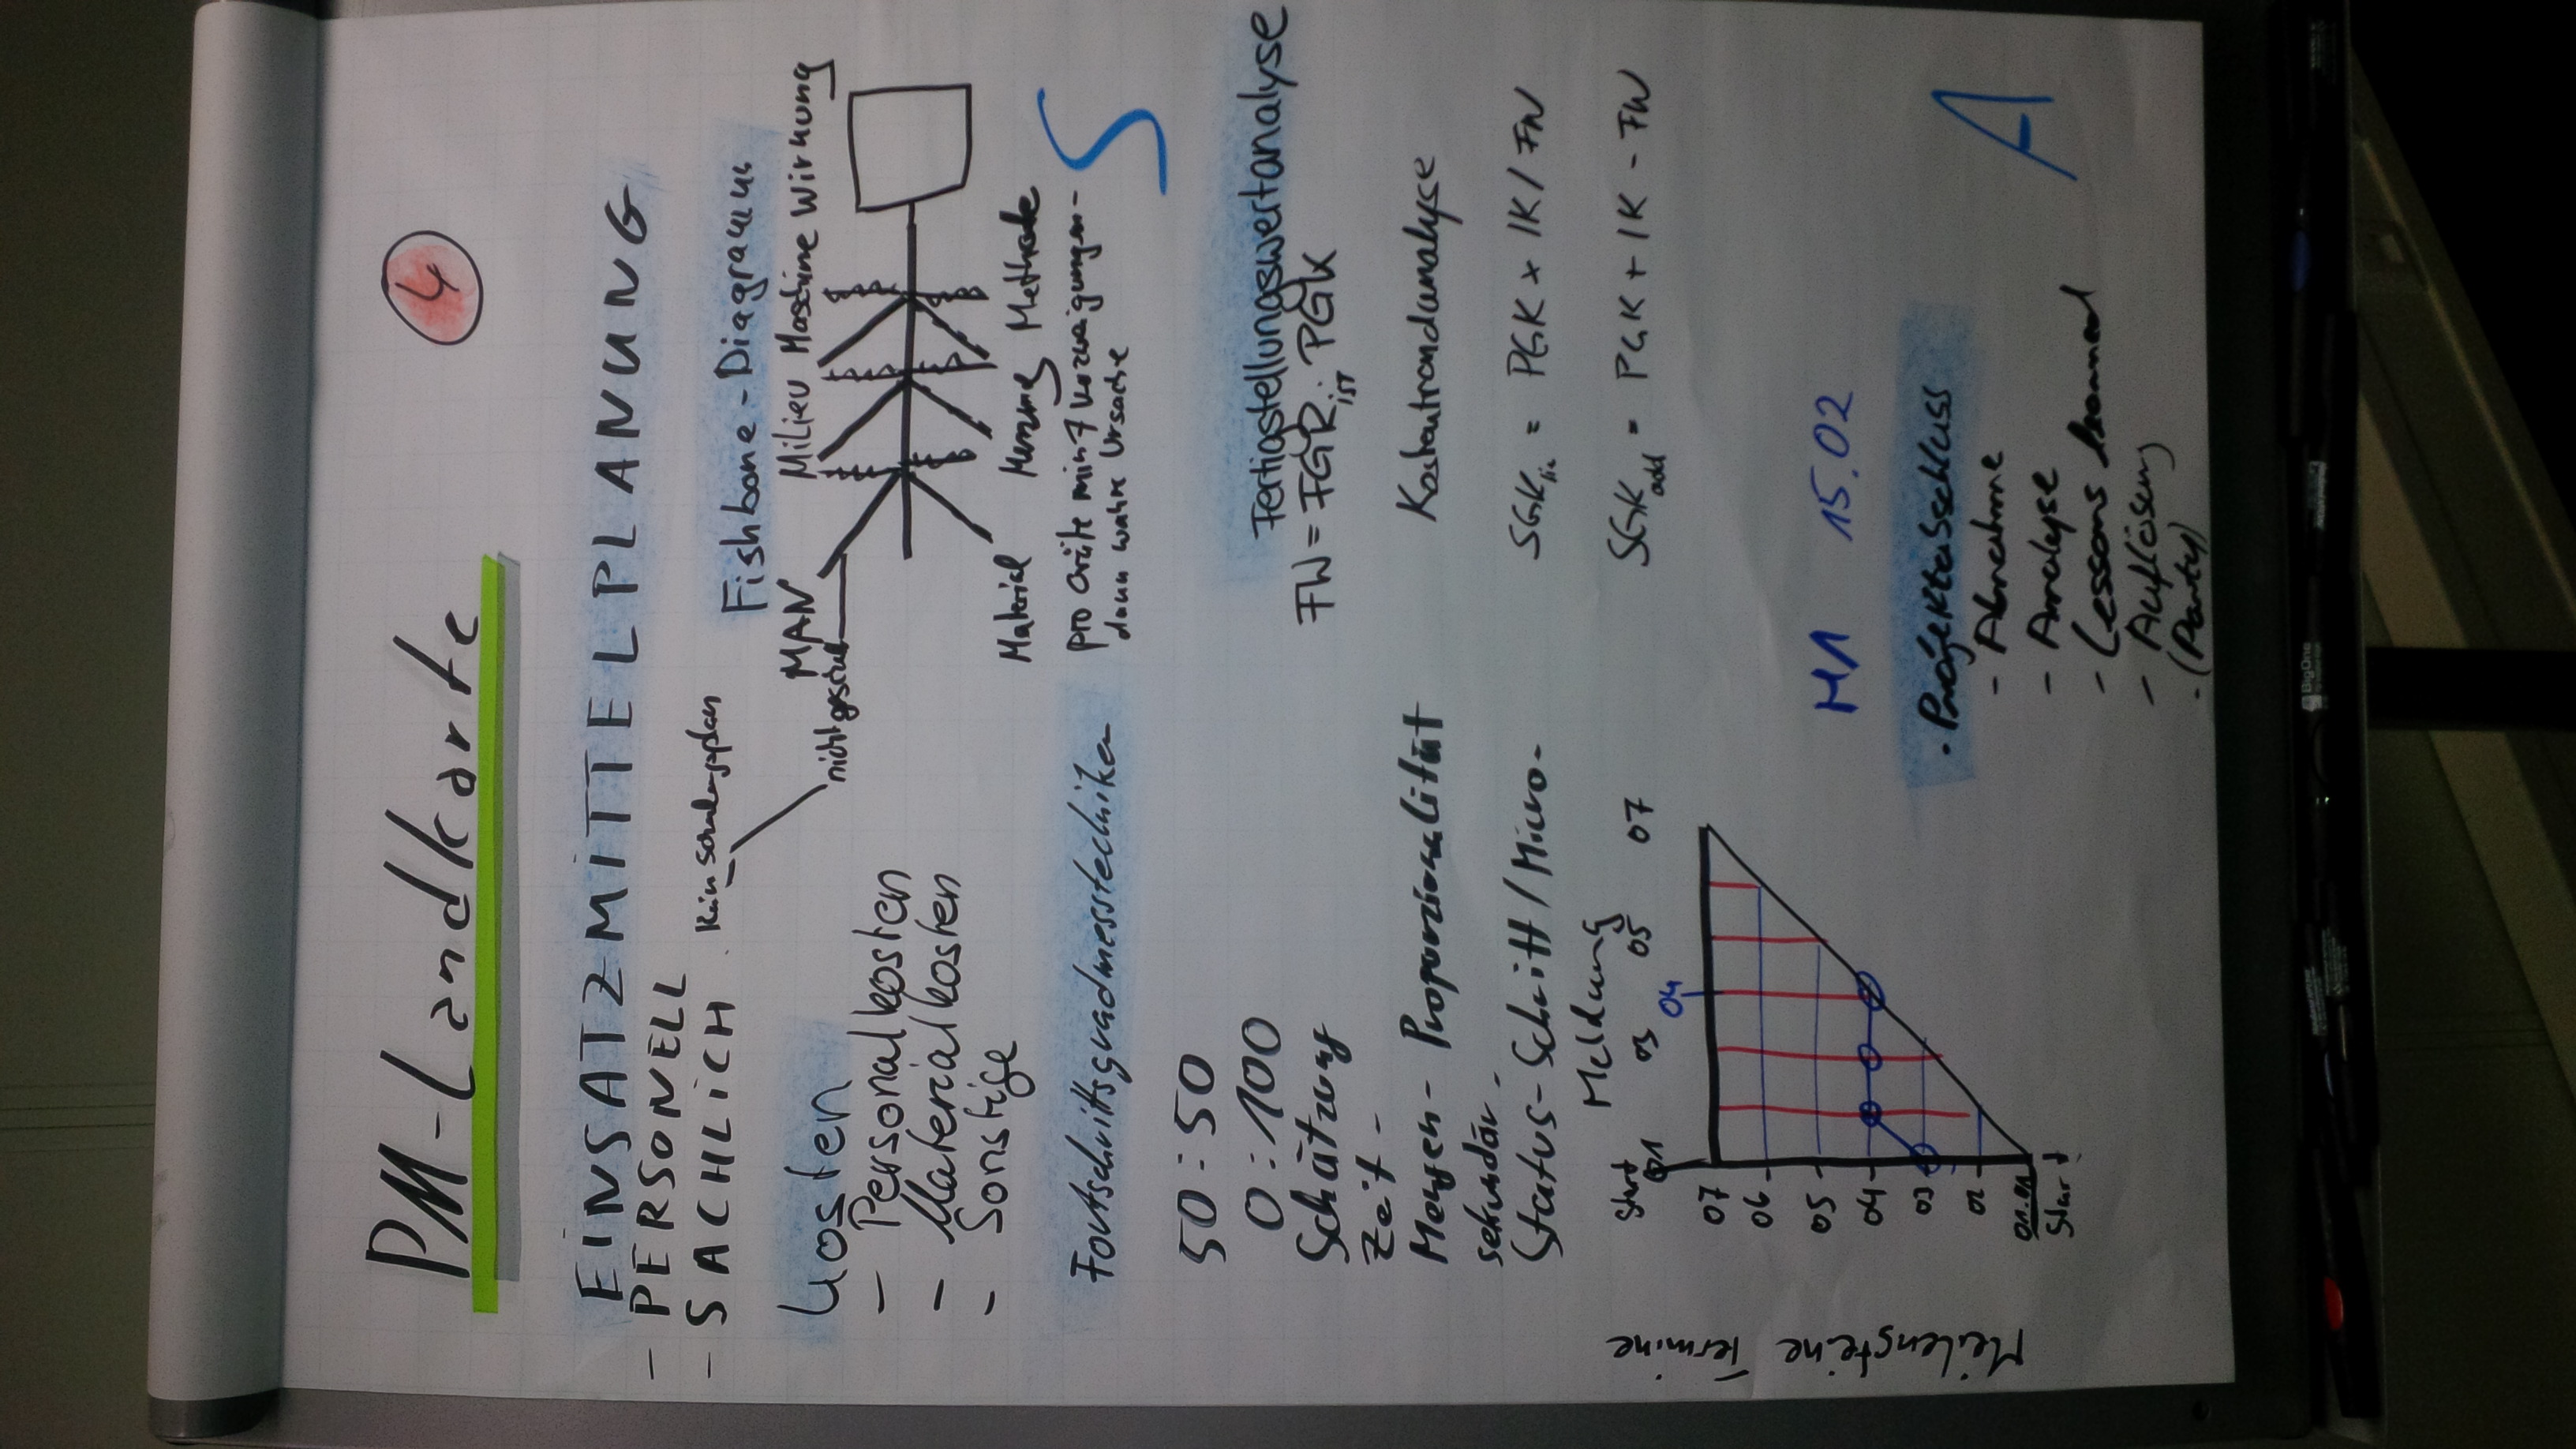 PM-Landkarte
4
EINSATZMITTELPLANUNG
- PERSONELL
- SACHLICH
Kein Schulungsplan
Fishbone-Diagramm
MAN Milieu Maschine Wirkung
nicht geschult
Material Messung Methode
pro Gräte min 7 Verzweigungen-
dann wahre Ursache
S
Kosten
- Personalkosten
- Materialkosten
- Sonstige
Fortschrittsgradmesstechniken
50:50
0:100
Schätzung
Zeit-
Mengen- Proporzionalität
sekundär-
Status-Schritt/Micro-
Fertigstellungswertanalyse
FW = FGR ist · PGK
Kostentrendanalyse
SGK lin = PGK × IK / FW
SGK add = PGK + IK - FW
Meldung
Start
01 03 04 05 07
07
06
05
04
03
02
01.01
Start
Meilensteine Termine
M1 15.02
· Projektabschluss
- Abnahme
- Analyse
- Lessons learned
- Auflösung
- (Party)
A
BigOne